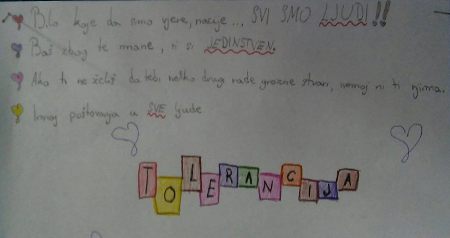 Bilo koje da smo vjere, nacije... SVI SMO LJUDI!!
Baš zbog te mane, ti si JEDINSTVEN.
Ako ti ne želiš da tebi netko drugi rade grozne stvari, nemoj ni ti njima.
Imaj poštovanja za SVE ljude
TOLERANCIJA